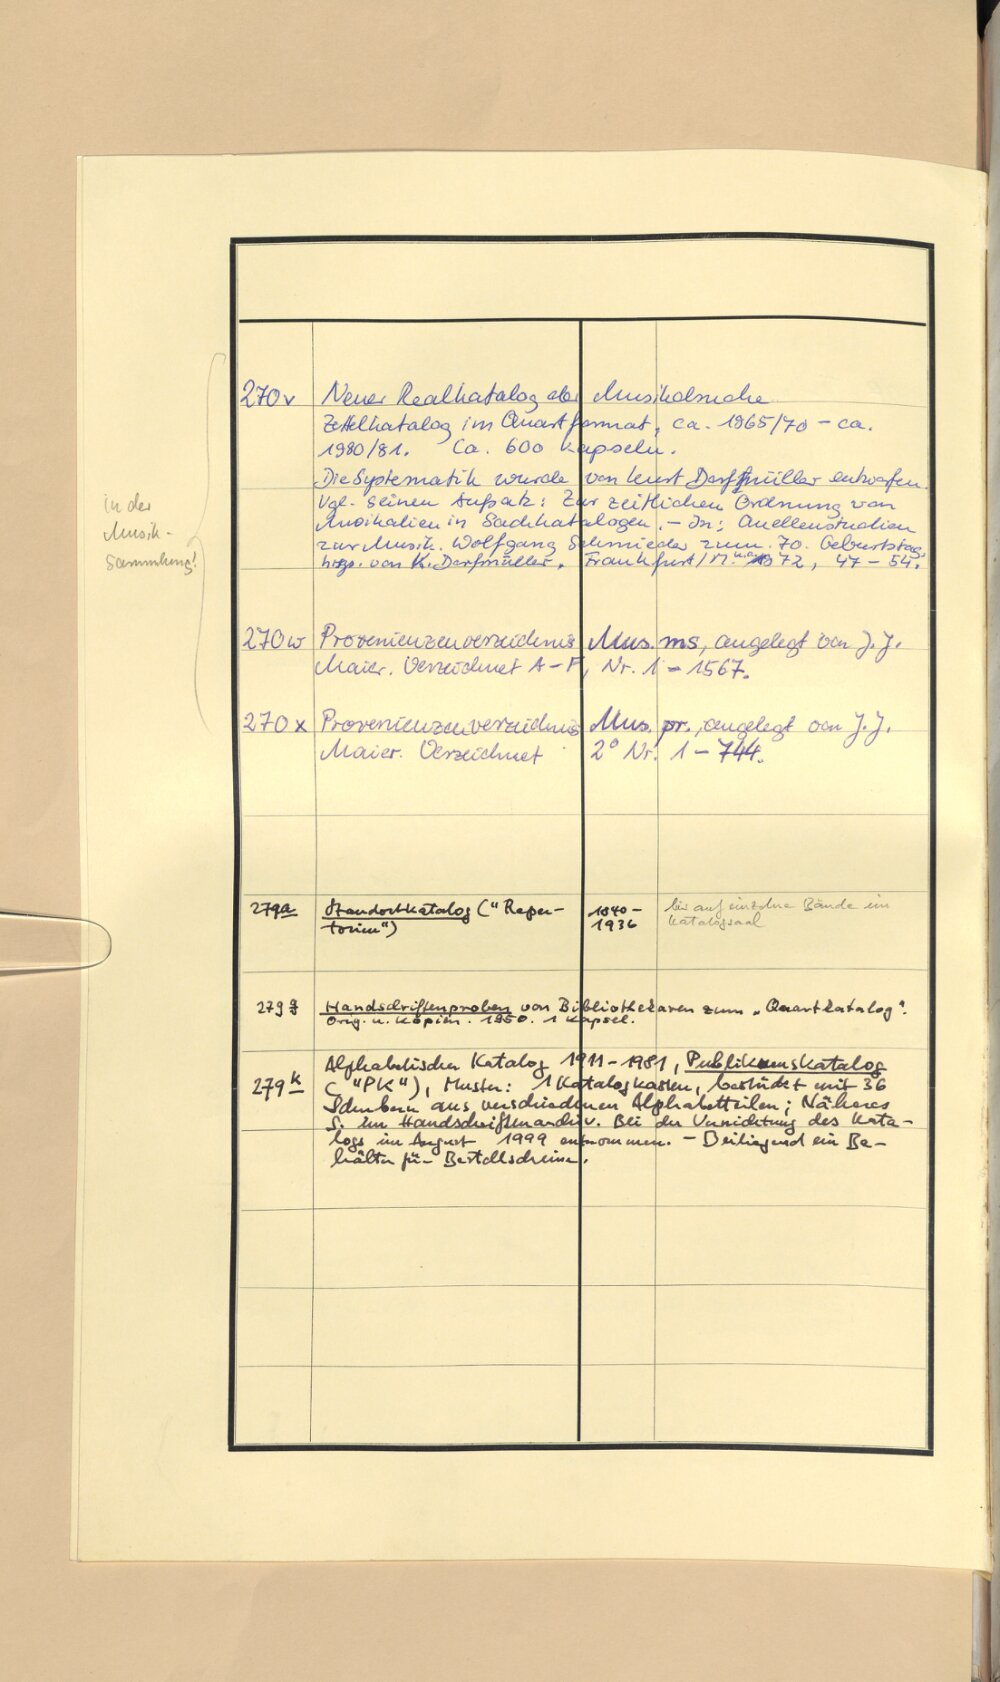 270v Neuer Realkatalog der Musikdrucke
Zettelkatalog im Quartformat, ca. 1965/70 – ca.
1980/81. Ca. 600 Kapseln.
Die Systematik wurde von Kurt Dorfmüller entworfen.
Vgl. seinen Aufsatz: Zur zeitlichen Ordnung von
Musikalien in Sachkatalogen. – In: Quellenstudien
zur Musik. Wolfgang Schmieder zum 70. Geburtstag.
hrsg. von K. Dorfmüller. Frankfurt/M. u.a. 1972, 47 – 54.
in der
Musik-
Sammlung!
270w Provenienzenverzeichnis Mus. ms, angelegt von J. J.
Maier. Verzeichnet A – F, Nr. 1 – 1567.
270x Provenienzenverzeichnis Mus. pr., angelegt von J. J.
Maier. Verzeichnet 2° Nr. 1 – 744.
279a Standortkatalog ("Reper- 1840 – bis auf einzelne Bände im
torium") 1936 Katalogsaal
279g Handschriftenproben von Bibliothekaren zum „Quartkatalog".
Orig. u. Kopien. 1950. 1 Kapsel.
279k Alphabetischer Katalog 1911–1981, Publikumskatalog
("PK"), Muster: 1 Katalogkasten, bestückt mit 36
Schubern aus verschiedenen Alphabetteilen; Näheres
s. im Handschriftenarchiv. Bei der Vernichtung des Kata-
logs im August 1999 entnommen. – Beiliegend ein Be-
hälter für Bestellscheine.